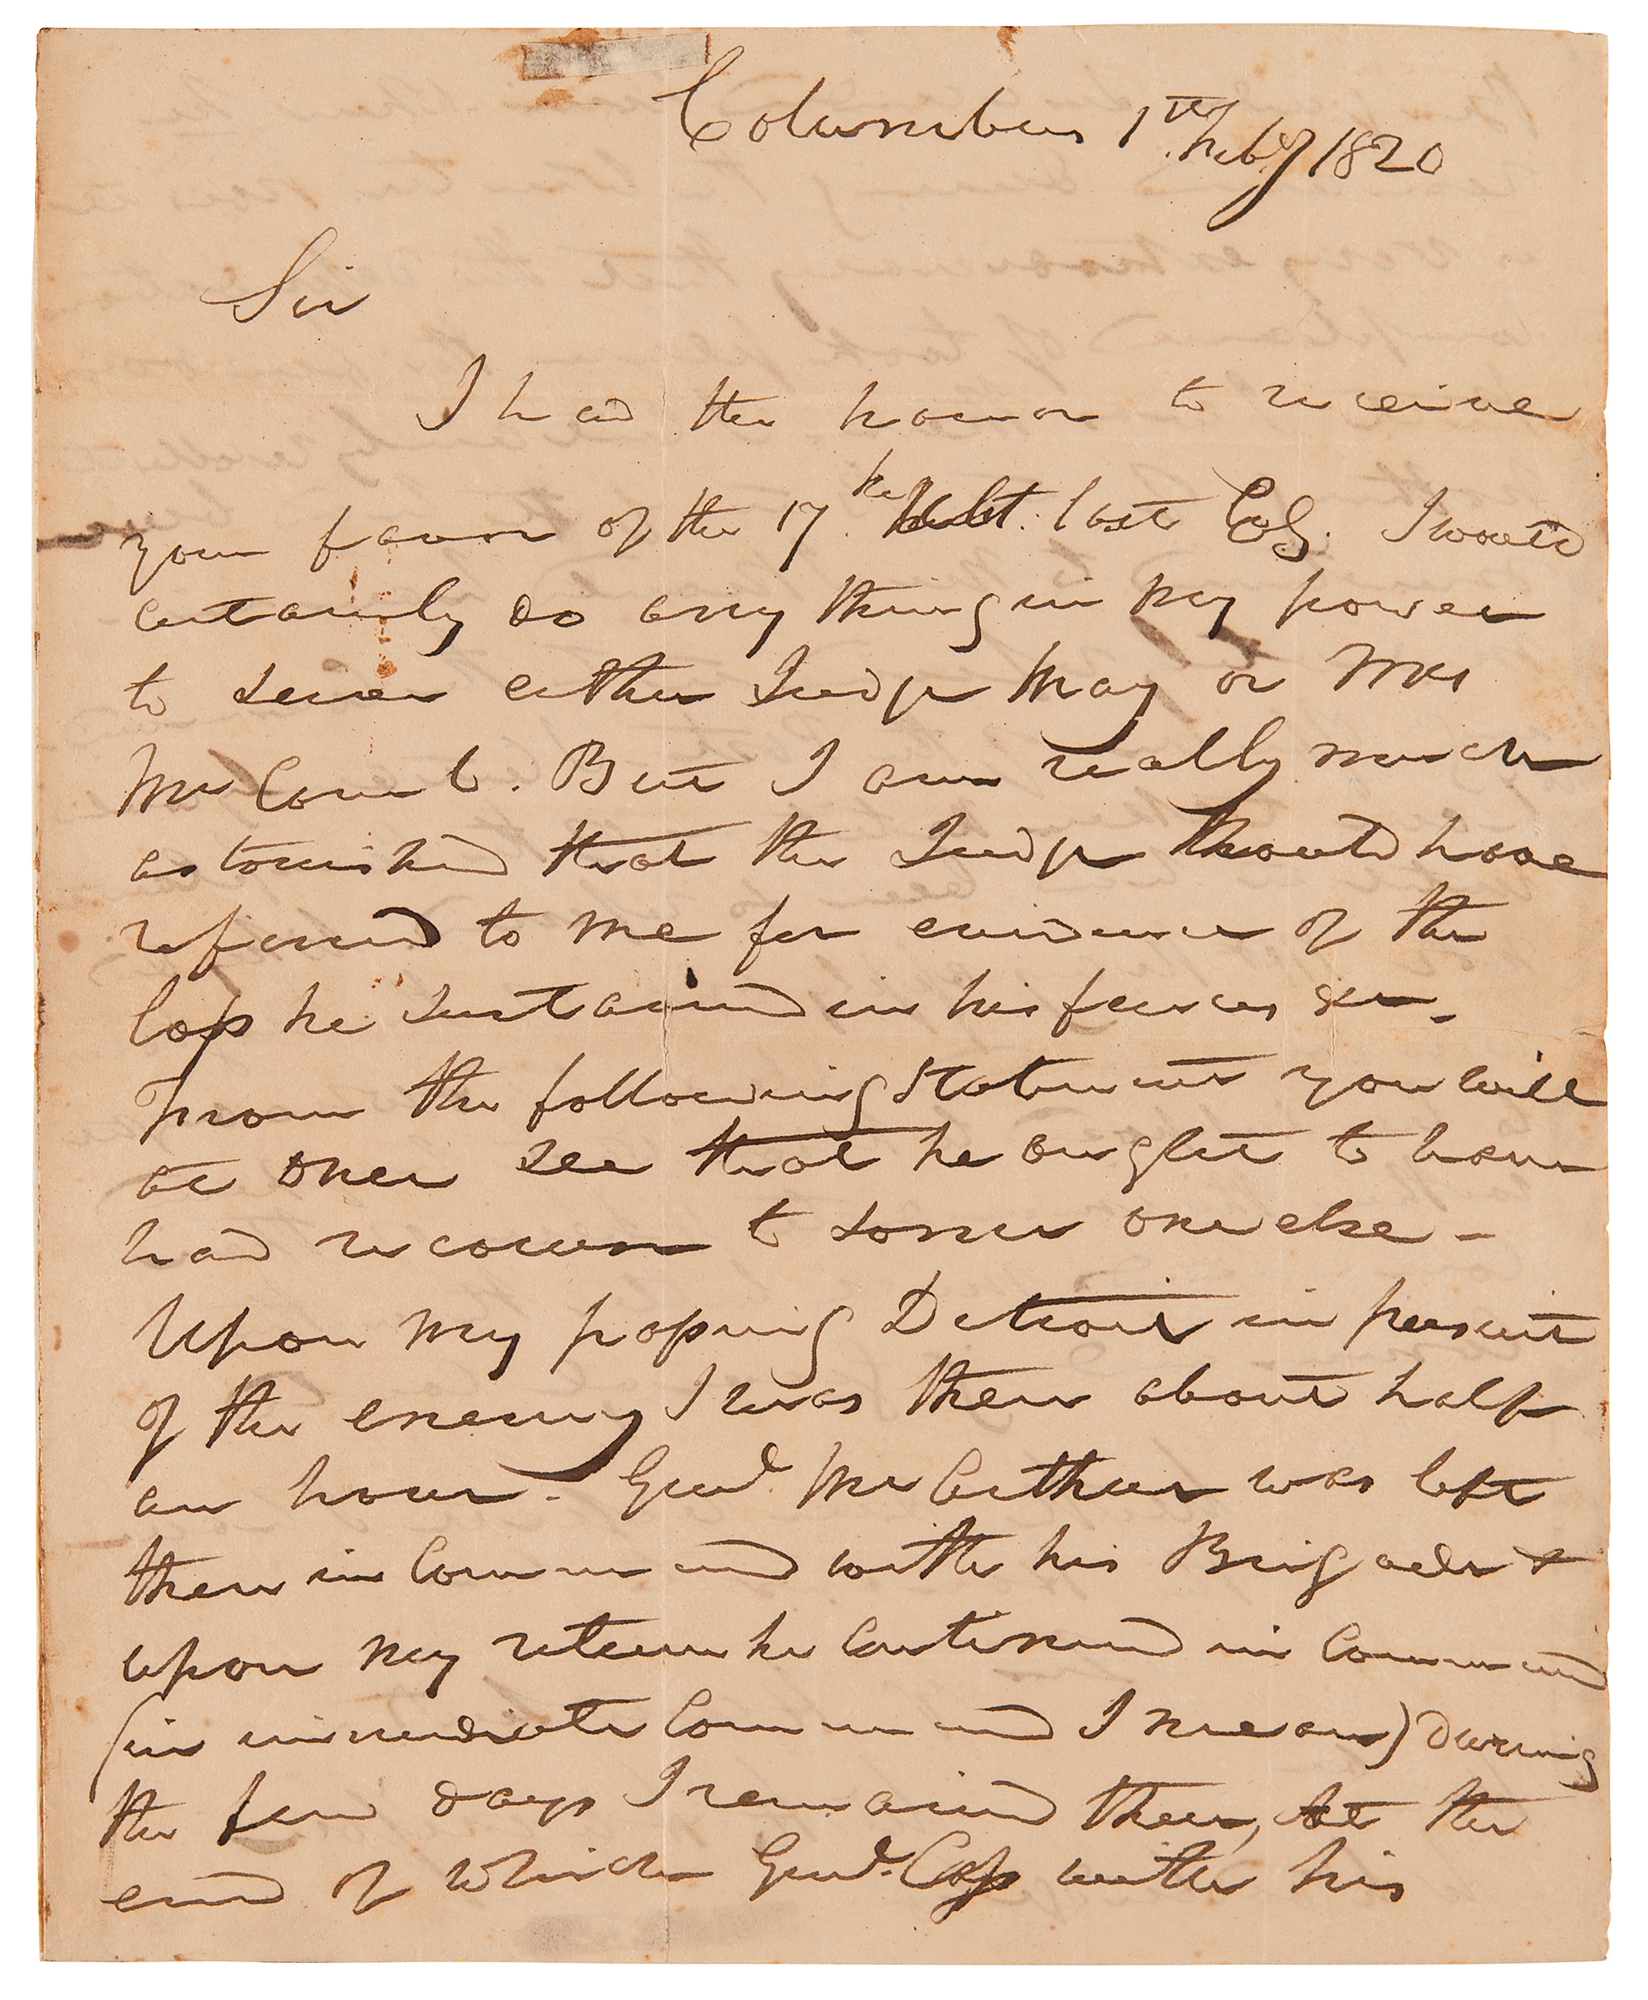 Columbus 1st Feby 1820
Sir
I had the honor to receive
your favor of the 17th last Evg. I would
certainly do any thing in my power
to serve either Judge May or Mrs
McComb. But I am really much
astonished that the Judge should have
referred to me for evidence of the
loss he sustained in his fences &c.
From the following statement you will
at once see that he ought to have
had recourse to some one else -
Upon my passing Detroit in persuit
of the enemy I was there about half
an hour. Genl. McArthur was left
there in Command with his Brigade &
upon my return he continued in Command
(in immediate Command I mean) during
the few days I remained there, at the
end of which Genl. Cass with his